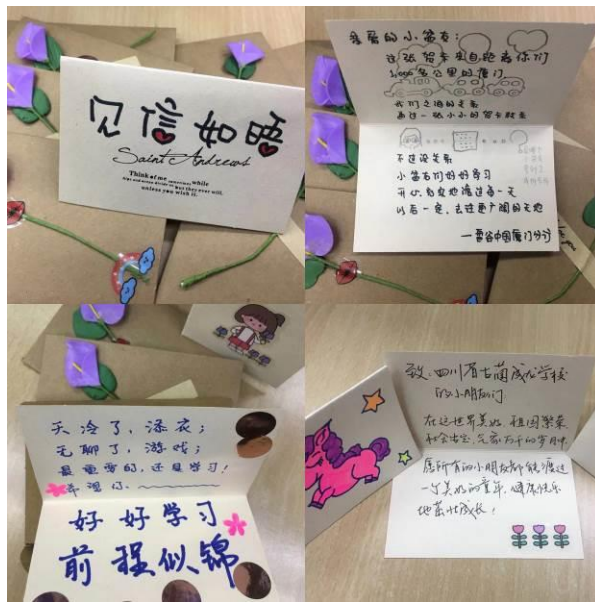 见信如晤
Saint Andrews
Think of me sometimes, while
unless you wish it.
亲爱的小笛友:
这张贺卡来自距离你们
2,000多公里的厦门
我们之间的关系
靠这一张小小的贺卡联系
不过没关系
小笛友们好好学习
开心、自在地度过每一天
以后一定,去往更广阔的天地
天冷了,添衣;
无聊了,游戏;
最重要的,还是学习!
希望你、
好好学习
前程似锦
致:四川省古蔺威龙学校
的小朋友们:
在这世界美好,祖国繁荣
愿所有的小朋友都能渡过
一个美好的童年,健康快乐
地茁壮成长!